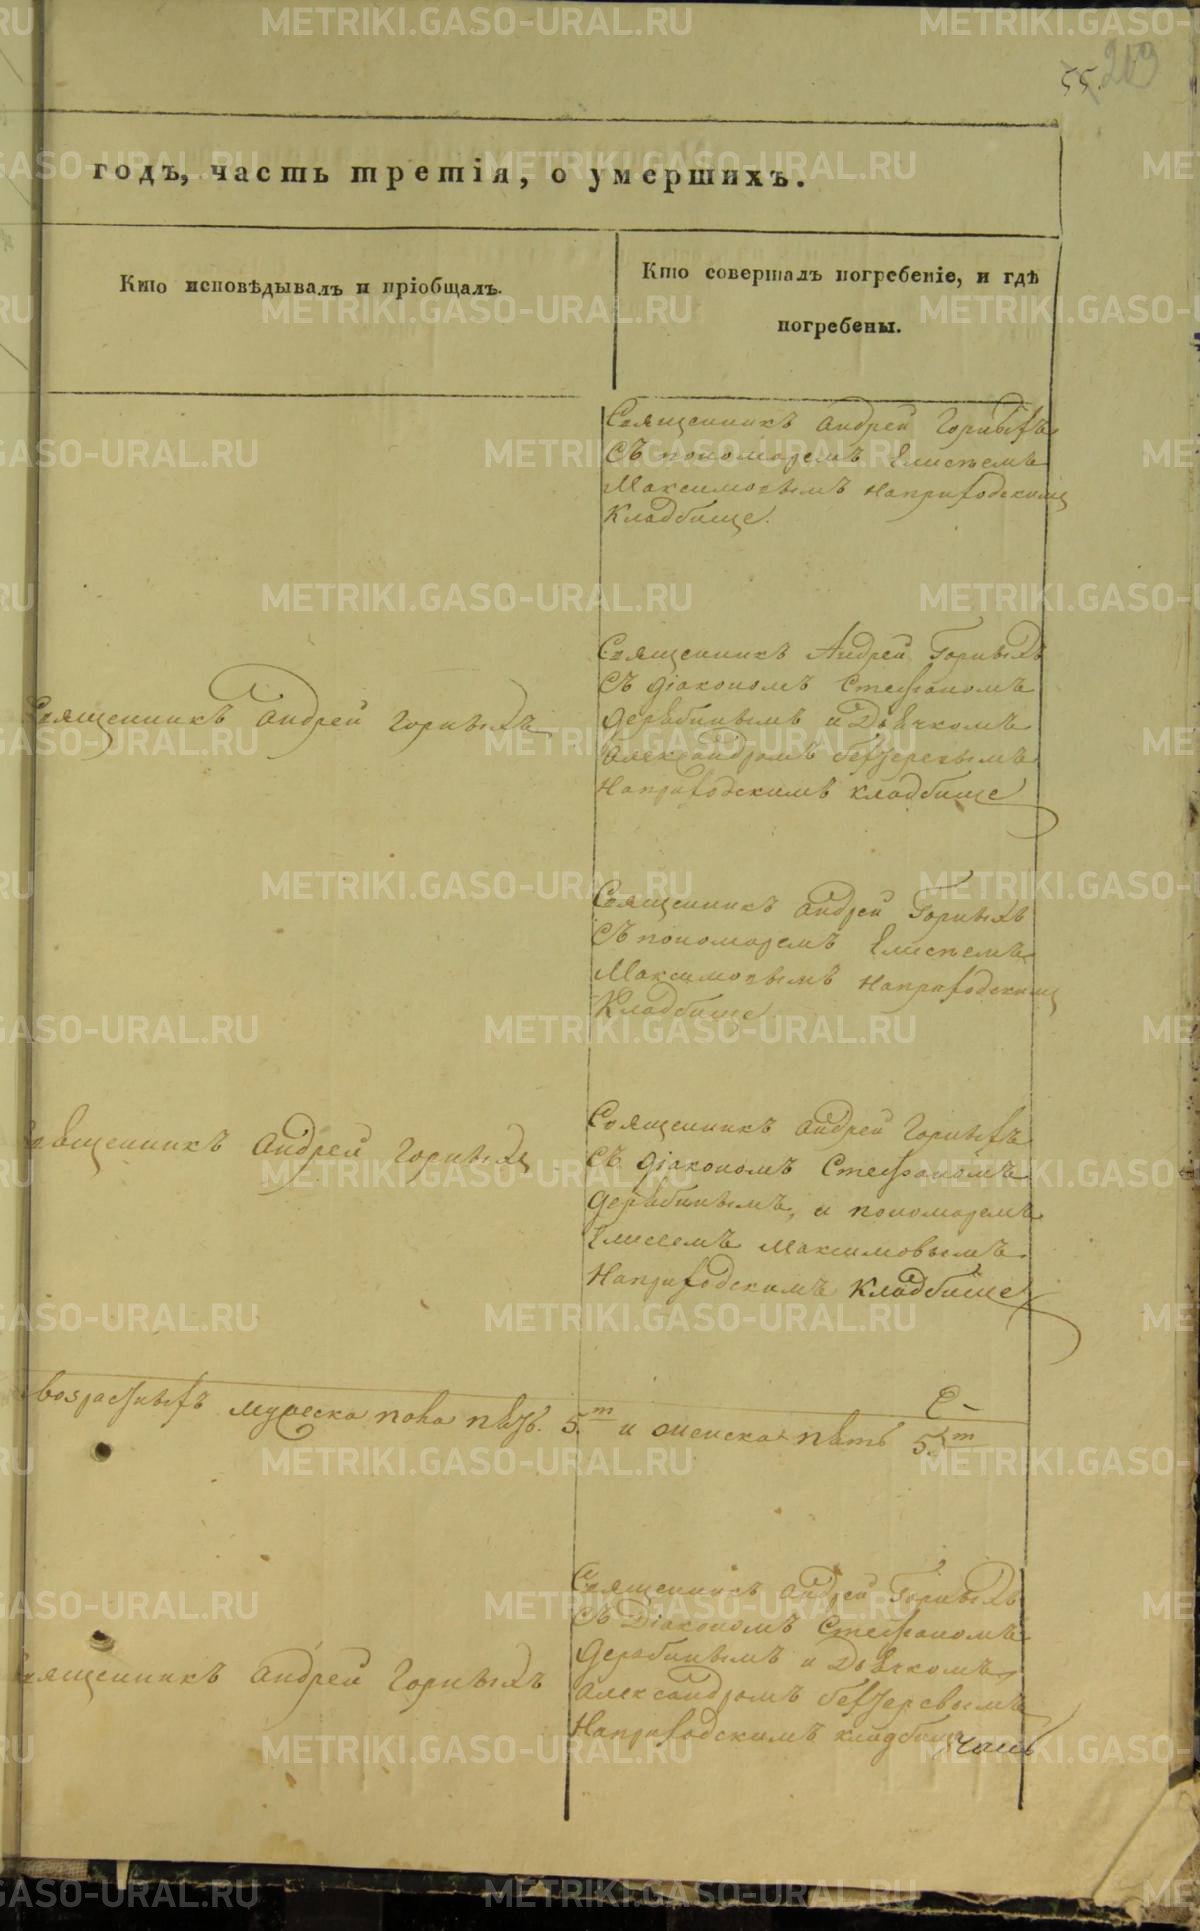 55. 203
годъ, часть третія, о умершихъ.
Кто исповѣдывалъ и пріобщалъ.
Кто совершалъ погребеніе, и гдѣ
погребены.
Священникъ Андрей Горныхъ
съ пономаремъ Елисѣемъ
Максимовымъ Наприходскимъ
Кладбище.
Священникъ Андрей Горныхъ
Священникъ Андрей Горныхъ
съ діакономъ Стефаномъ
Дерябинымъ и Дьячкомъ
Александромъ
Наприходскимъ кладбище
Священникъ Андрей Горныхъ
съ пономаремъ Елисѣемъ
Максимовымъ Наприходскимъ
Кладбище
Священникъ Андрей Горныхъ
Священникъ Андрей Горныхъ
съ діакономъ Стефаномъ
Дерябинымъ, и пономаремъ
Елисеемъ Максимовымъ
Наприходскимъ Кладбище
возрастныхъ мужеска пола пять. 5.т и женска пять 5.т
Священникъ Андрей Горныхъ
Священникъ Андрей Горныхъ
съ Діакономъ Стефаномъ
Дерябинымъ и Дьячкомъ
Александромъ
Наприходскимъ кладбище
METRIKI.GASO-URAL.RU